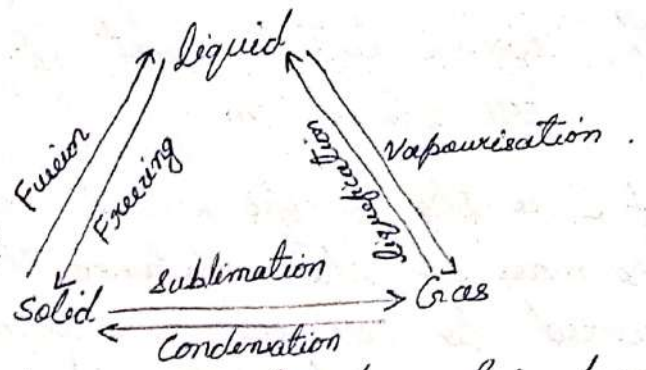 liquid
Fusion
Freezing
liquefication
Vapourisation.
Sublimation
Solid
Gas
Condensation